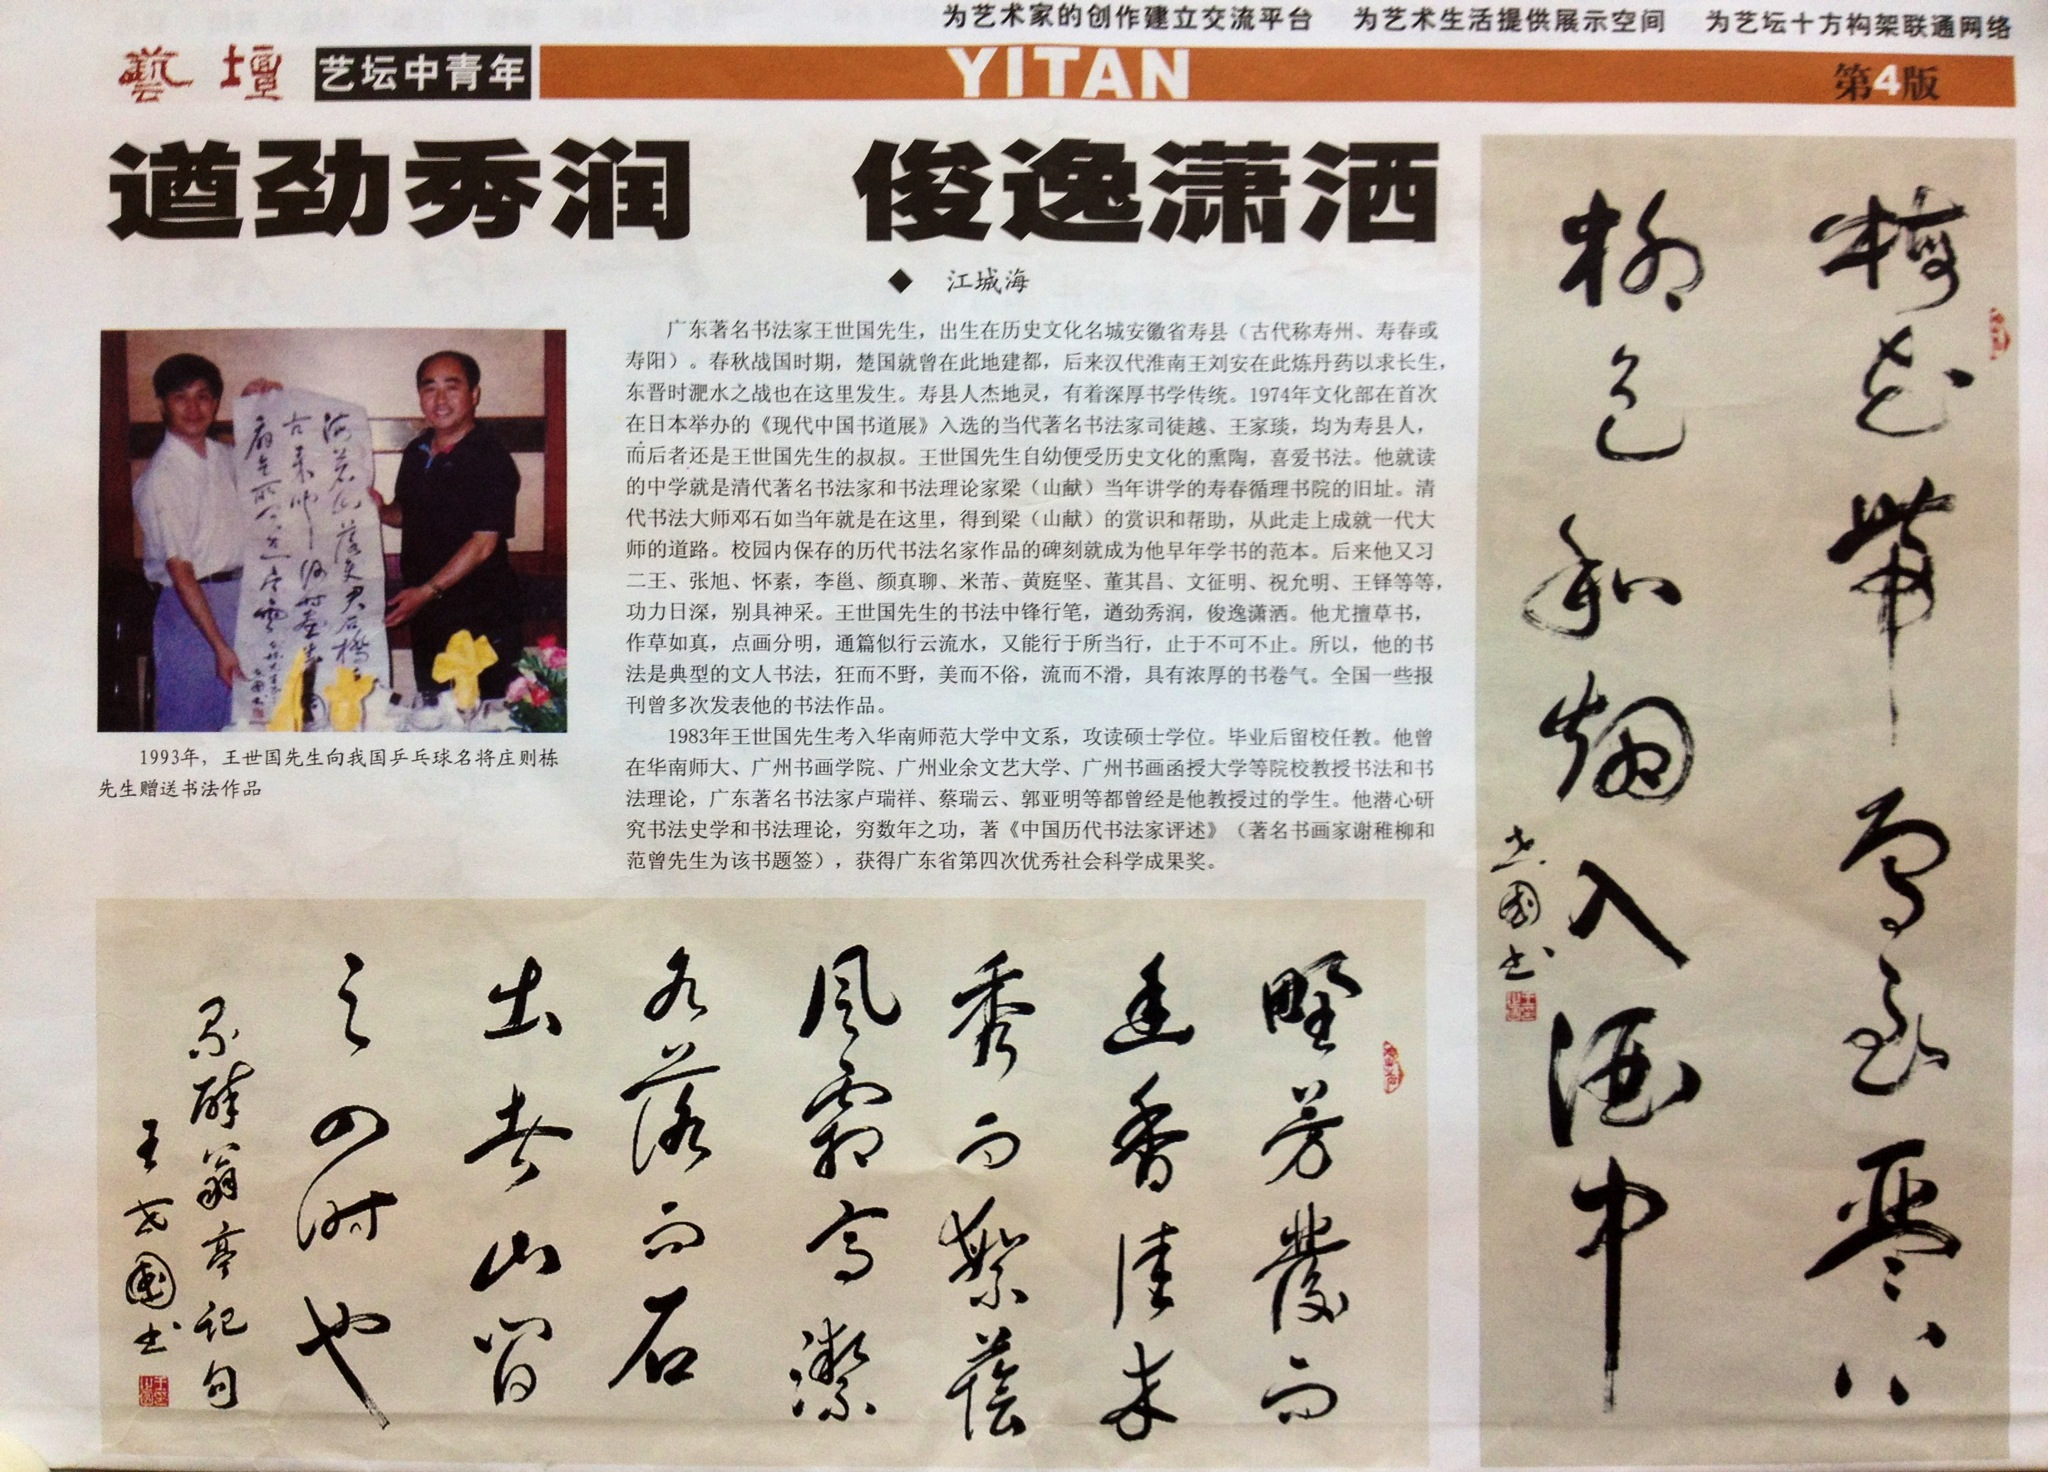 为艺术家的创作建立交流平台 为艺术生活提供展示空间 为艺坛十方构架联通网络
藝壇 艺坛中青年 YITAN 第4版
遒劲秀润 俊逸潇洒
◆ 江城海
广东著名书法家王世国先生，出生在历史文化名城安徽省寿县（古代称寿州、寿春或
寿阳）。春秋战国时期，楚国就曾在此地建都，后来汉代淮南王刘安在此炼丹药以求长生，
东晋时淝水之战也在这里发生。寿县人杰地灵，有着深厚书学传统。1974年文化部在首次
在日本举办的《现代中国书道展》入选的当代著名书法家司徒越、王家琰，均为寿县人，
而后者还是王世国先生的叔叔。王世国先生自幼便受历史文化的熏陶，喜爱书法。他就读
的中学就是清代著名书法家和书法理论家梁（山献）当年讲学的寿春循理书院的旧址。清
代书法大师邓石如当年就是在这里，得到梁（山献）的赏识和帮助，从此走上成就一代大
师的道路。校园内保存的历代书法名家作品的碑刻就成为他早年学书的范本。后来他又习
二王、张旭、怀素，李邕、颜真聊、米芾、黄庭坚、董其昌、文征明、祝允明、王铎等等，
功力日深，别具神采。王世国先生的书法中锋行笔，遒劲秀润，俊逸潇洒。他尤擅草书，
作草如真，点画分明，通篇似行云流水，又能行于所当行，止于不可不止。所以，他的书
法是典型的文人书法，狂而不野，美而不俗，流而不滑，具有浓厚的书卷气。全国一些报
刊曾多次发表他的书法作品。
1983年王世国先生考入华南师范大学中文系，攻读硕士学位。毕业后留校任教。他曾
在华南师大、广州书画学院、广州业余文艺大学、广州书画函授大学等院校教授书法和书
法理论，广东著名书法家卢瑞祥、蔡瑞云、郭亚明等都曾经是他教授过的学生。他潜心研
究书法史学和书法理论，穷数年之功，著《中国历代书法家评述》（著名书画家谢稚柳和
范曾先生为该书题签），获得广东省第四次优秀社会科学成果奖。
1993年，王世国先生向我国乒乓球名将庄则栋
先生赠送书法作品
梅花带雪飞琴上
柳色和烟入酒中
世國书
野芳發而
幽香佳木
秀而繁蔭
風霜高潔
水落而石
出者山間
之四时也
录醉翁亭記句
王世國书